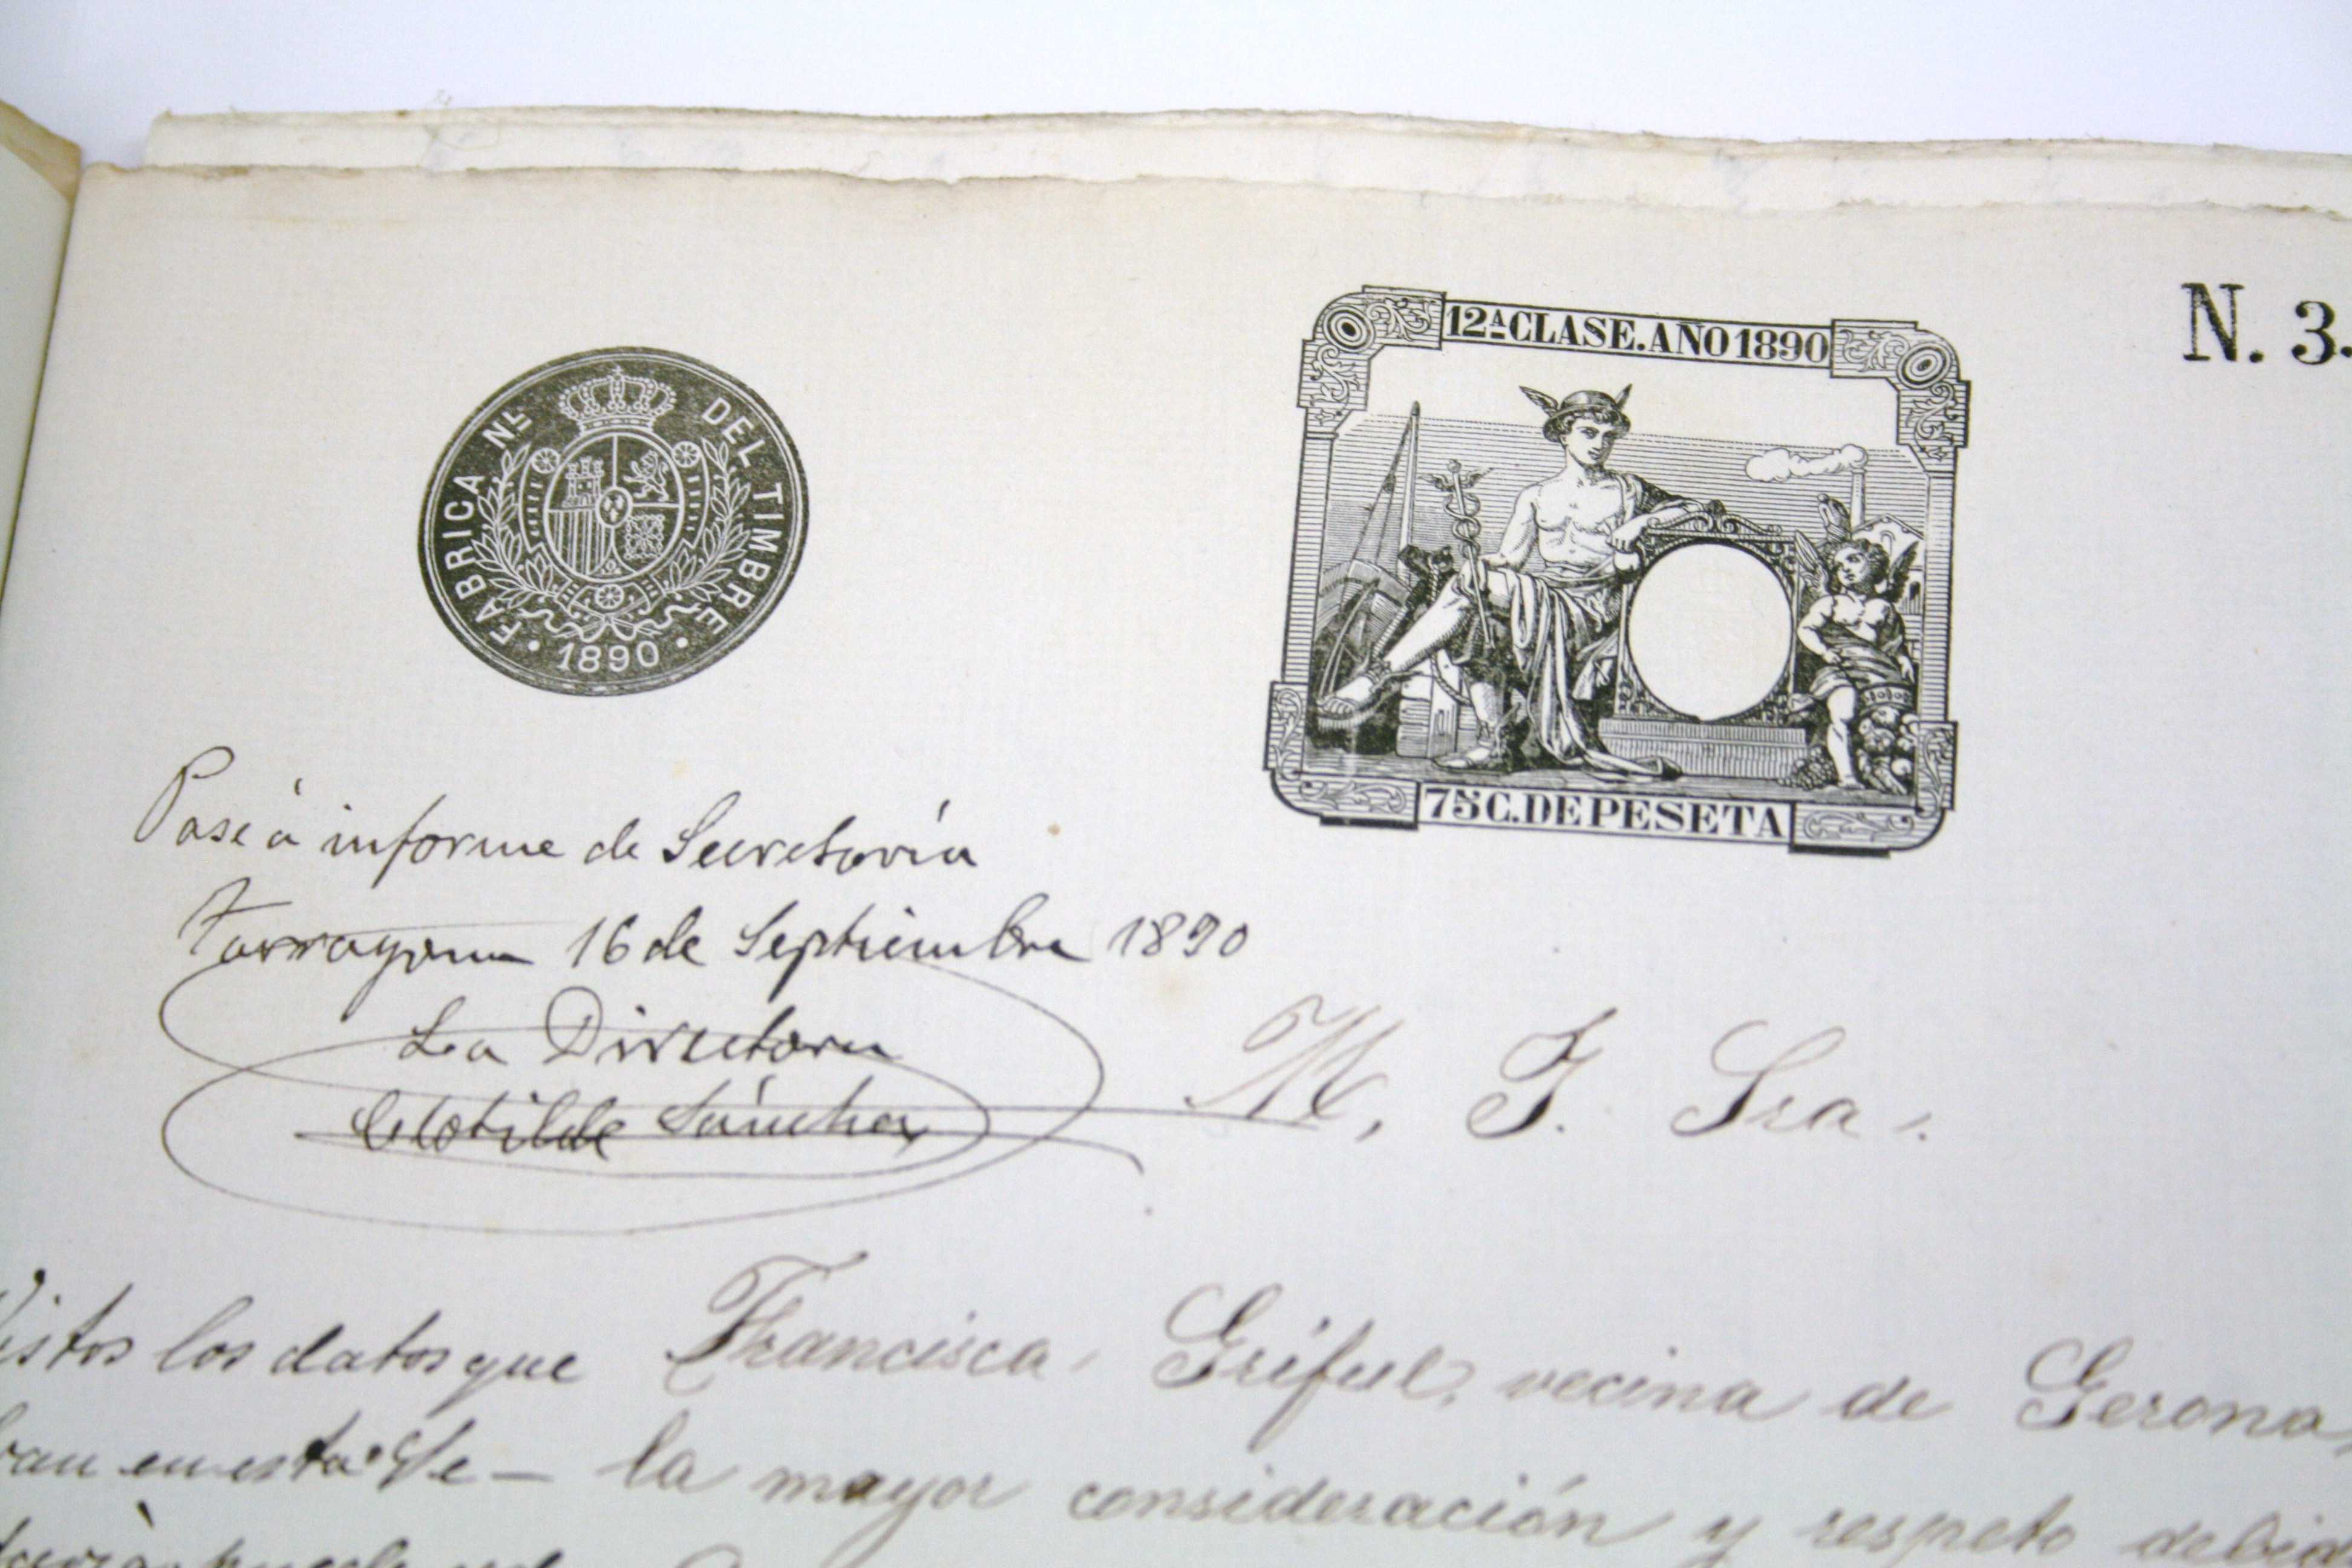 FABRICA Nˡ DEL TIMBRE
· 1890 ·
12ª CLASE. AÑO 1890
75 C. DE PESETA
N. 3.
Pase á informe de Secretaría
Tarragona 16 de Septiembre 1890
La Directora
Clotilde Sánchez
M. I. Sra.
Vistos los datos que
Francisca Griful, vecina de Gerona,
en esta
la mayor consideración y respeto